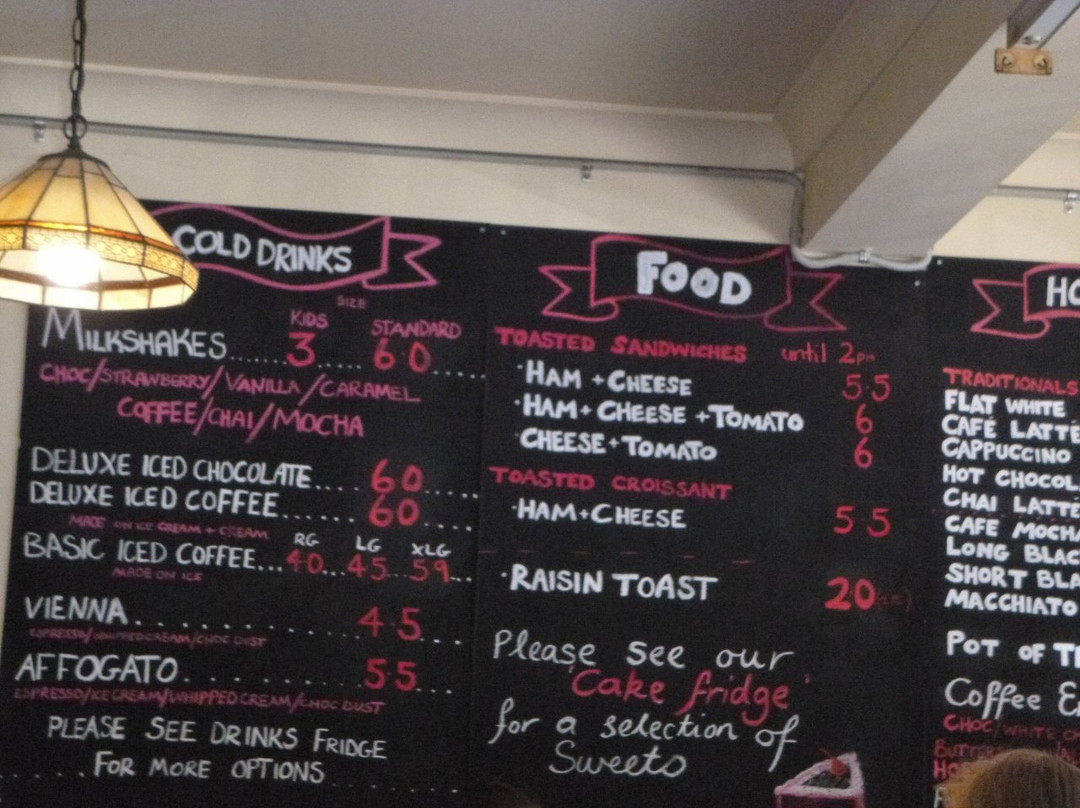 COLD DRINKS
SIZE
KIDS STANDARD
MILKSHAKES......3.....6.0.....
CHOC/STRAWBERRY/VANILLA/CARAMEL
COFFEE/CHAI/MOCHA
DELUXE ICED CHOCOLATE....6.0.....
DELUXE ICED COFFEE.......6.0....
MADE ON ICE CREAM + CREAM
RG LG XLG
BASIC ICED COFFEE...4.0...4.5...5.9...
MADE ON ICE
VIENNA..............4.5....
ESPRESSO/WHIPPED CREAM/CHOC DUST
AFFOGATO...........5.5....
ESPRESSO/ICE CREAM/WHIPPED CREAM/CHOC DUST
PLEASE SEE DRINKS FRIDGE
.....FOR MORE OPTIONS
FOOD
TOASTED SANDWICHES until 2pm
·HAM + CHEESE 5.5
·HAM + CHEESE + TOMATO 6
·CHEESE + TOMATO 6
TOASTED CROISSANT
·HAM + CHEESE 5.5
·RAISIN TOAST 20
Please see our
'Cake fridge'
for a selection of
Sweets
HO
TRADITIONALS
FLAT WHITE
CAFÉ LATTE
CAPPUCCINO
HOT CHOCOL
CHAI LATTE
CAFE MOCHA
LONG BLAC
SHORT BLA
MACCHIATO
POT OF TE
Coffee
CHOC/WHITE
BUTTER
HO